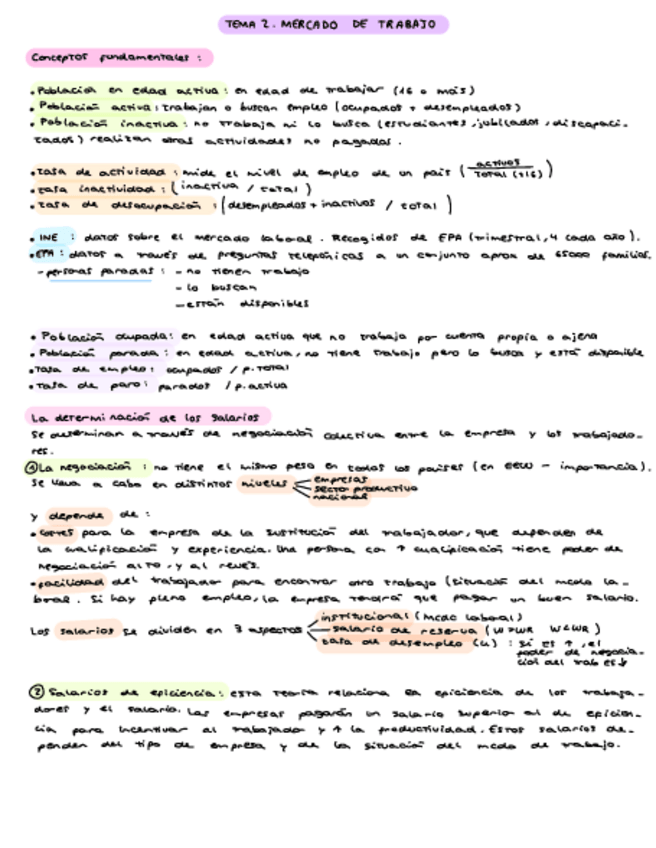 TEMA 2. MERCADO DE TRABAJO
Conceptos fundamentales :
• Población en edad activa : en edad de trabajar (16 o más)
• Población activa : trabajan o buscan empleo (ocupados + desempleados)
• Población inactiva : no trabaja ni lo busca (estudiantes, jubilados, discapaci-
tados) realizan otras actividades no pagadas.
• tasa de actividad : mide el nivel de empleo de un país ( activos / TOTAL (+16) )
• tasa inactividad : ( inactiva / total )
• tasa de desocupación : ( desempleados + inactivos / total )
• INE : datos sobre el mercado laboral. Recogidos de EPA (trimestral, 4 cada año).
• EPA : datos a través de preguntas telefónicas a un conjunto aprox de 65000 familias.
- personas paradas : - no tienen trabajo
- lo buscan
- están disponibles
• Población ocupada : en edad activa que no trabaja por cuenta propia o ajena
• Población parada : en edad activa, no tiene trabajo pero lo busca y está disponible
• Tasa de empleo : ocupados / p. total
• Tasa de paro : parados / p. activa
La determinación de los salarios
Se determinan a través de negociación colectiva entre la empresa y los trabajado-
res.
① La negociación : no tiene el mismo peso en todos los países (en EEUU - importancia).
Se lleva a cabo en distintos niveles empresas
sector productivo
nacional
y depende de :
• costes para la empresa de la sustitución del trabajador, que dependen de
la cualificación y experiencia. Una persona con ↑ cualificación tiene poder de
negociación alto, y al revés.
• facilidad del trabajador para encontrar otro trabajo (situación del mcdo la-
boral. Si hay pleno empleo, la empresa tendrá que pagar un buen salario.
Los salarios se dividen en 3 aspectos institucional (mcdo laboral)
salario de reserva (W>WR W<WR)
tasa de desempleo (u) : si es ↑, el
poder de negocia-
ción del trab es ↓
② Salarios de eficiencia : esta teoría relaciona la eficiencia de los trabaja-
dores y el salario. Las empresas pagarán un salario superior al de eficien-
cia para incentivar al trabajador y ↑ la productividad. Estos salarios de-
penden del tipo de empresa y de la situación del mcdo de trabajo.